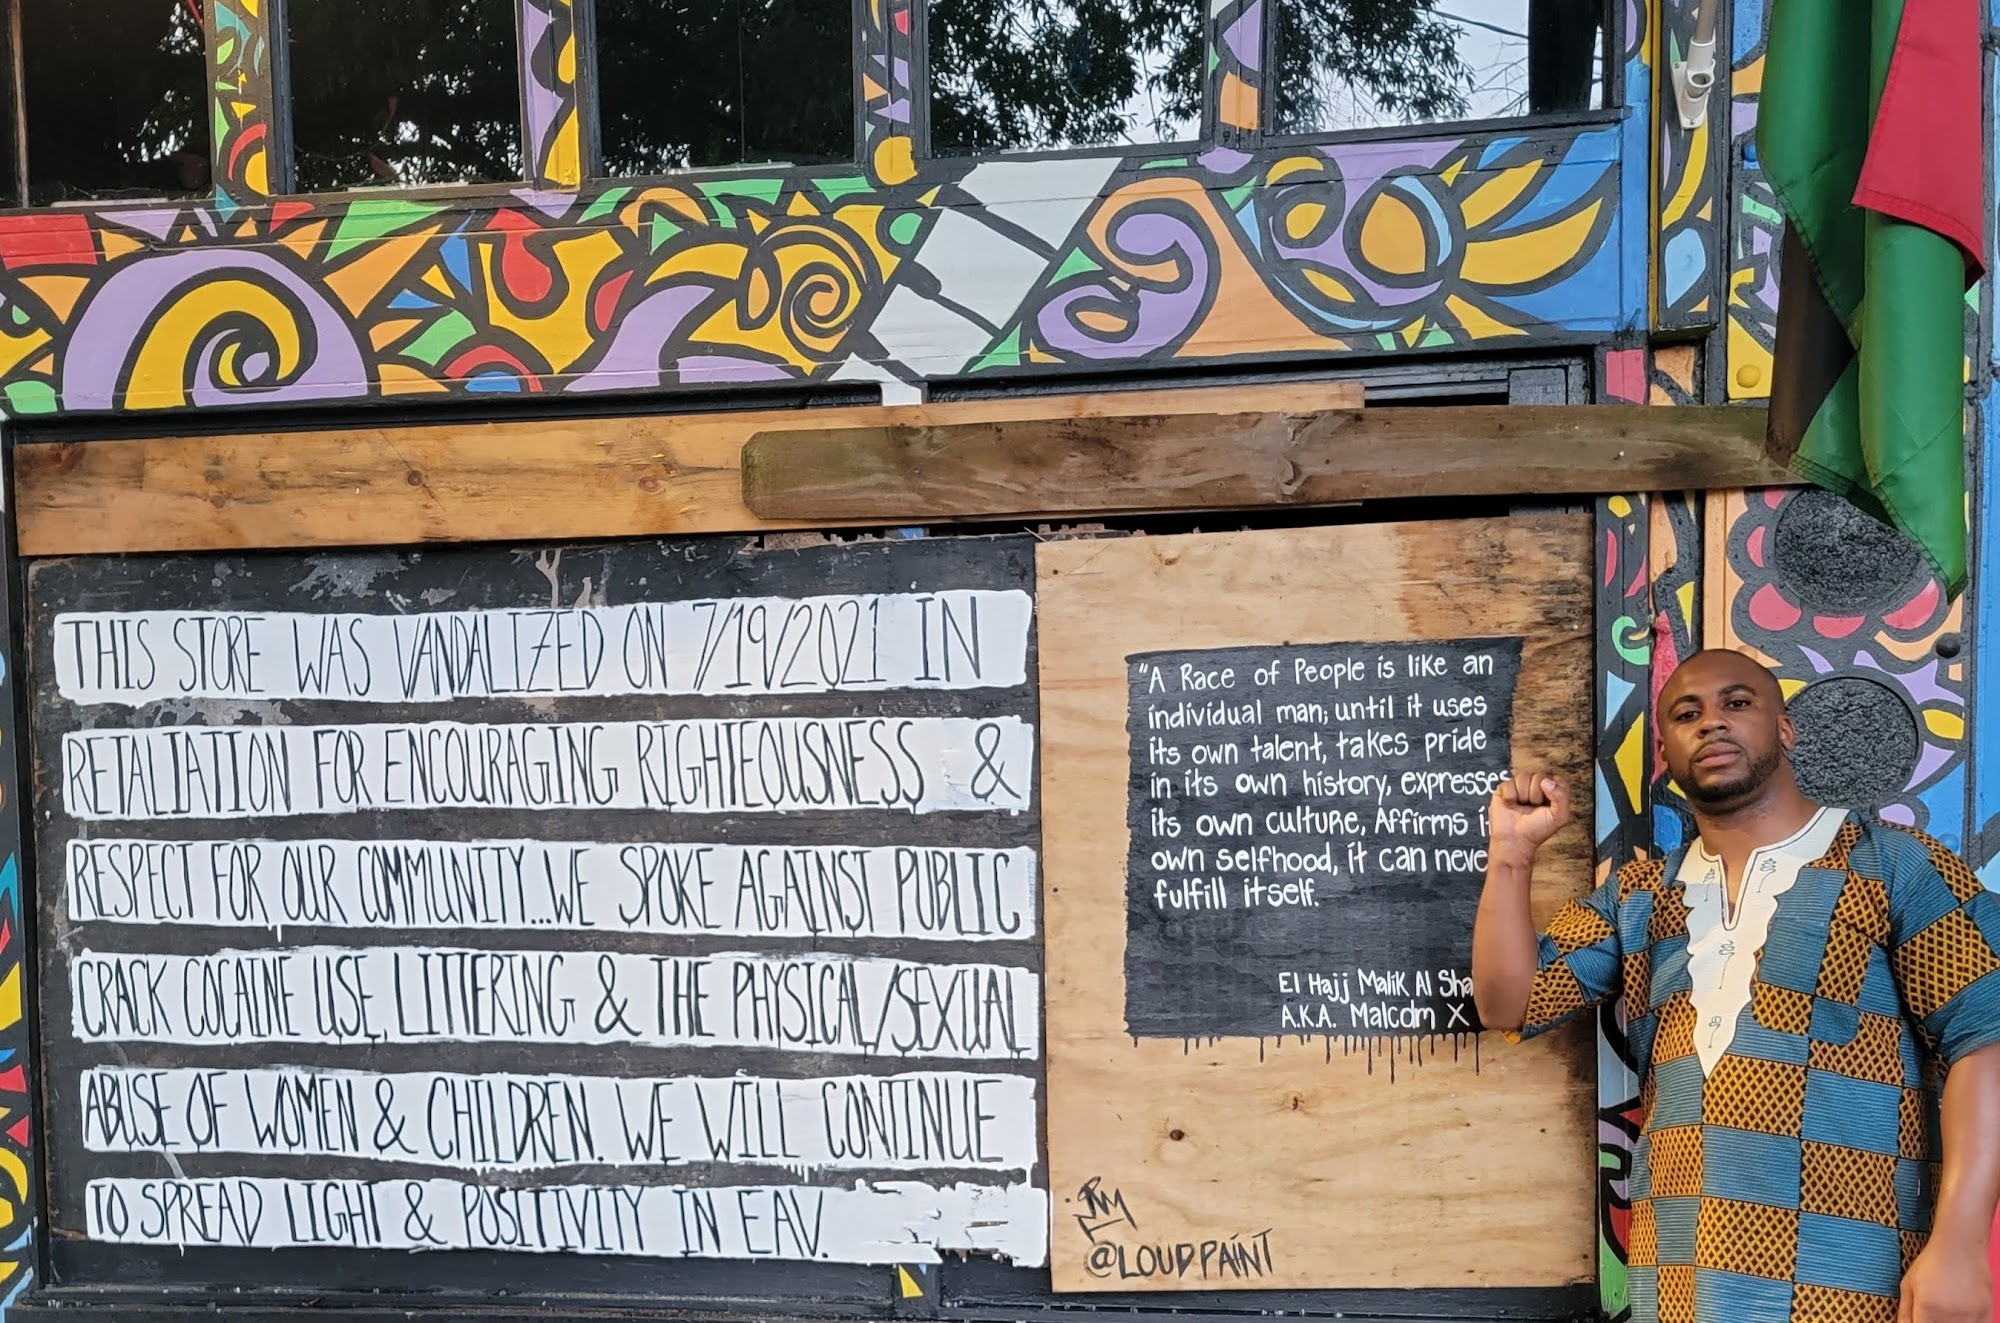 THIS STORE WAS VANDALIZED ON 7/19/2021 IN
RETALIATION FOR ENCOURAGING RIGHTEOUSNESS &
RESPECT FOR OUR COMMUNITY...WE SPOKE AGAINST PUBLIC
CRACK COCAINE USE, LITTERING & THE PHYSICAL/SEXUAL
ABUSE OF WOMEN & CHILDREN. WE WILL CONTINUE
TO SPREAD LIGHT & POSITIVITY IN EAV.
"A Race of People is like an
individual man; until it uses
its own talent, takes pride
in its own history, expresses
its own culture, Affirms
own selfhood, it can
fulfill itself.
El Hajj Malik Al
A.K.A. Malcolm X
@LOUDPAINT